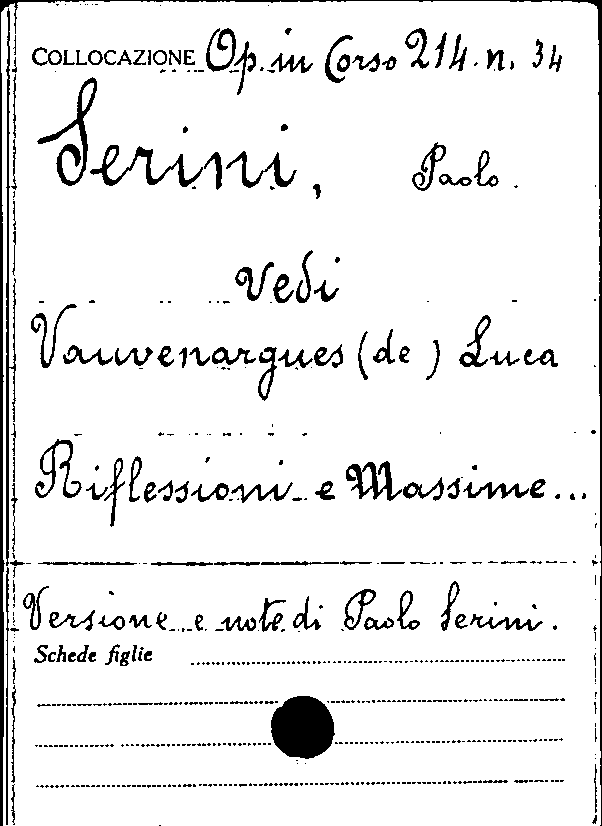 COLLOCAZIONE Op. in Corso 214. n. 34
Serini, Paolo.
Vedi
Vauvenargues (de) Luca
Riflessioni e Massime...
Versione e note di Paolo Serini.
Schede figlie